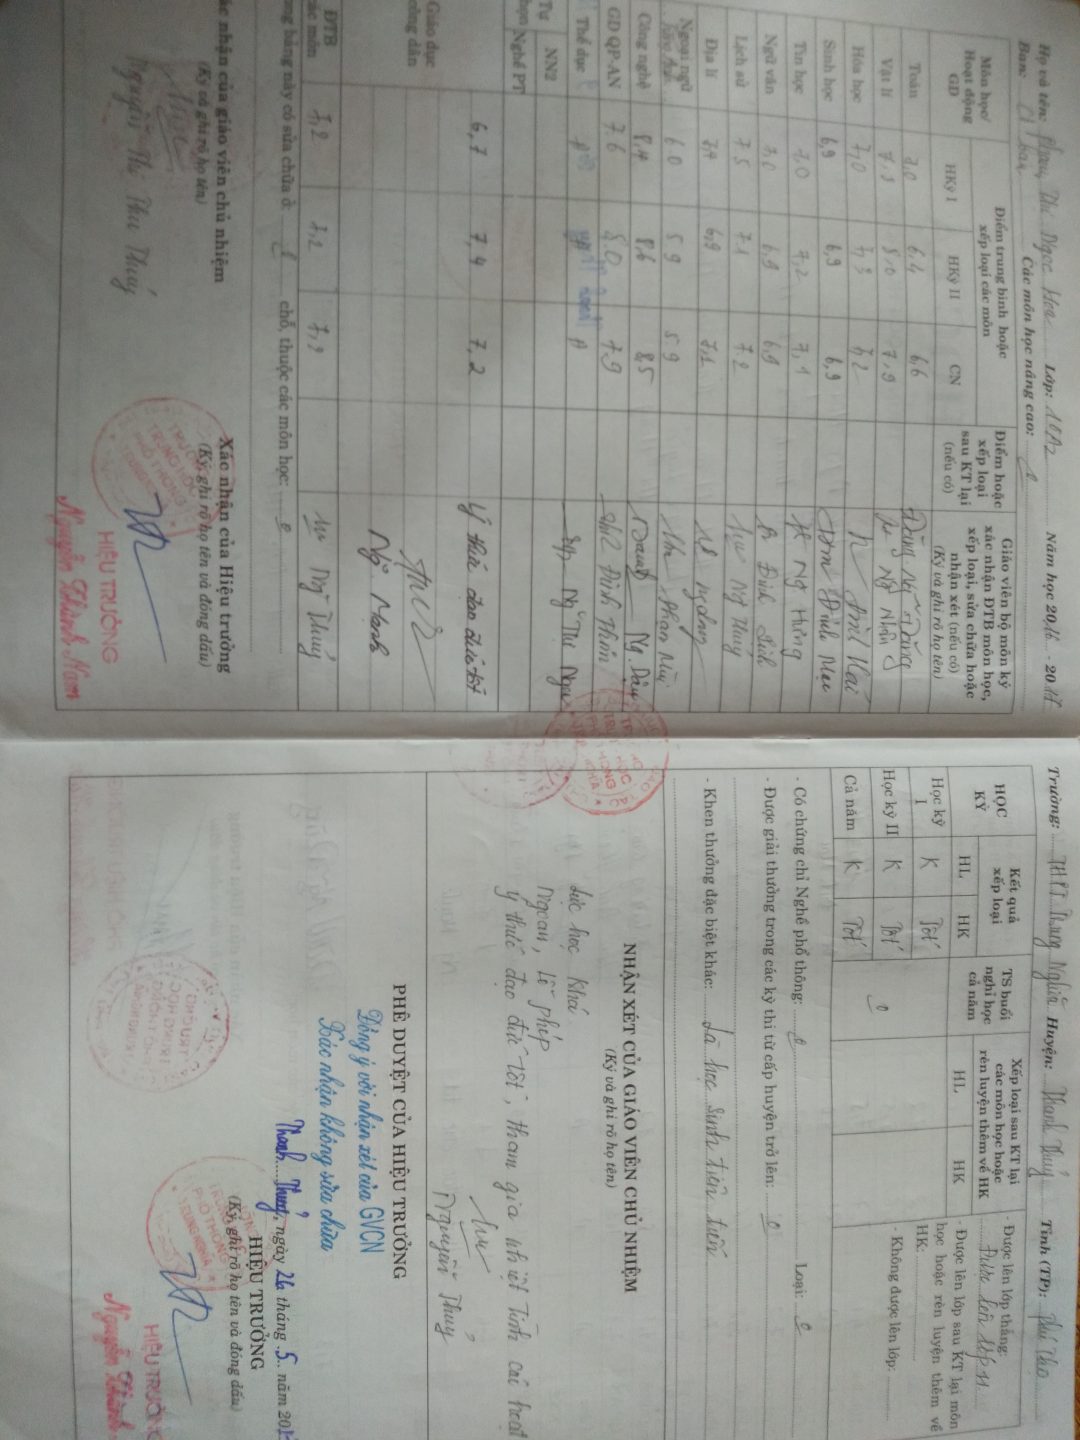 Họ và tên: Thị Ngọc Hoa Lớp: 10A2 Năm học 2016 - 2017
Ban: Cơ bản Các môn học nâng cao:
Môn học/ Hoạt động GD
Điểm trung bình hoặc xếp loại các môn
HKỳ I HKỳ II CN
Điểm hoặc xếp loại sau KT lại (nếu có)
Giáo viên bộ môn ký xác nhận ĐTB môn học, xếp loại, sửa chữa hoặc nhận xét (nếu có)
(Ký và ghi rõ họ tên)
Toán 7,0 6,4 6,6
Vật lí 7,9 Nhận
Hóa học 7,0 7,3 7,2
Sinh học 6,9 6,9 6,9 Đinh
Tin học 7,0 7,2 7,1 Hưng
Ngữ văn 7,0 6,9 6,9 Đinh
Lịch sử 7,5 7,1 7,2 Thúy
Địa lí 7,4 6,9 7,1
Ngoại ngữ 6 0 5 9 5 9 Phan Mùi
Công nghệ 8,4 8,6 8,5 Ng. Dậu
GD QP-AN 7 6 8,0 7 9 Đinh
Thể dục Đ Đ
Tự chọn NN2
Nghề PT
Giáo dục công dân 6,7 7,4 7,2 Ý thức đạo đức tốt
Ngô Mạnh
ĐTB các môn 7,2 7,2 7,2 Thúy
Trong bảng này có sửa chữa ở: chỗ, thuộc các môn học:
Xác nhận của giáo viên chủ nhiệm
(Ký và ghi rõ họ tên)
Nguyễn Thị Thu Thúy
Xác nhận của Hiệu trưởng
(Ký, ghi rõ họ tên và đóng dấu)
HIỆU TRƯỞNG
Nguyễn Thành Nam
Trường: THPT Trung Nghĩa Huyện: Thanh Thủy Tỉnh (TP): Phú Thọ
HỌC KỲ
Kết quả xếp loại
HL HK
TS buổi nghỉ học cả năm
Xếp loại sau KT lại các môn học hoặc rèn luyện thêm về HK
HL HK
Học kỳ I K Tốt
Học kỳ II K Tốt
Cả năm K Tốt
- Được lên lớp thẳng:
Được lên lớp 11
- Được lên lớp sau KT lại môn học hoặc rèn luyện thêm về HK:
- Không được lên lớp:
- Có chứng chỉ Nghề phổ thông: Loại:
- Được giải thưởng trong các kỳ thi từ cấp huyện trở lên:
- Khen thưởng đặc biệt khác: Là học sinh tiên tiến
NHẬN XÉT CỦA GIÁO VIÊN CHỦ NHIỆM
(Ký và ghi rõ họ tên)
Lực học khá.
Ngoan, lễ phép
Ý thức đạo đức tốt, tham gia nhiệt tình các hoạt
Nguyễn Thúy
PHÊ DUYỆT CỦA HIỆU TRƯỞNG
Đồng ý với nhận xét của GVCN
Xác nhận không sửa chữa
Thanh Thủy, ngày 26 tháng 5 năm 201
HIỆU TRƯỞNG
(Ký, ghi rõ họ tên và đóng dấu)
HIỆU TRƯỞNG
Nguyễn Thành